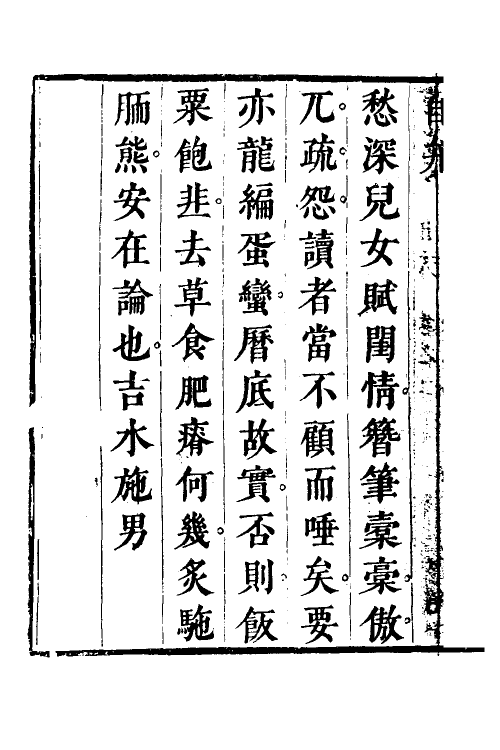 愁深兒女賦閨情。簪筆槖橐。傲
兀。疏。怨。讀者當不顧而唾矣。要
亦龍編蛋蠻。曆底故實。否則飯
粟飽韭。去草食肥瘠何幾。炙駞
胹熊。安在論也。吉水施男